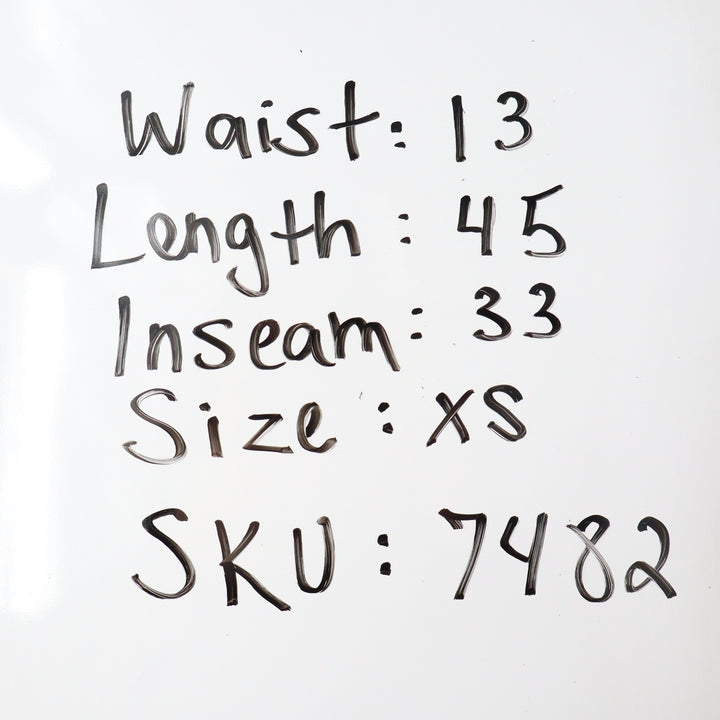 Waist: 13
Length: 45
Inseam: 33
Size: XS
SKU: 7482